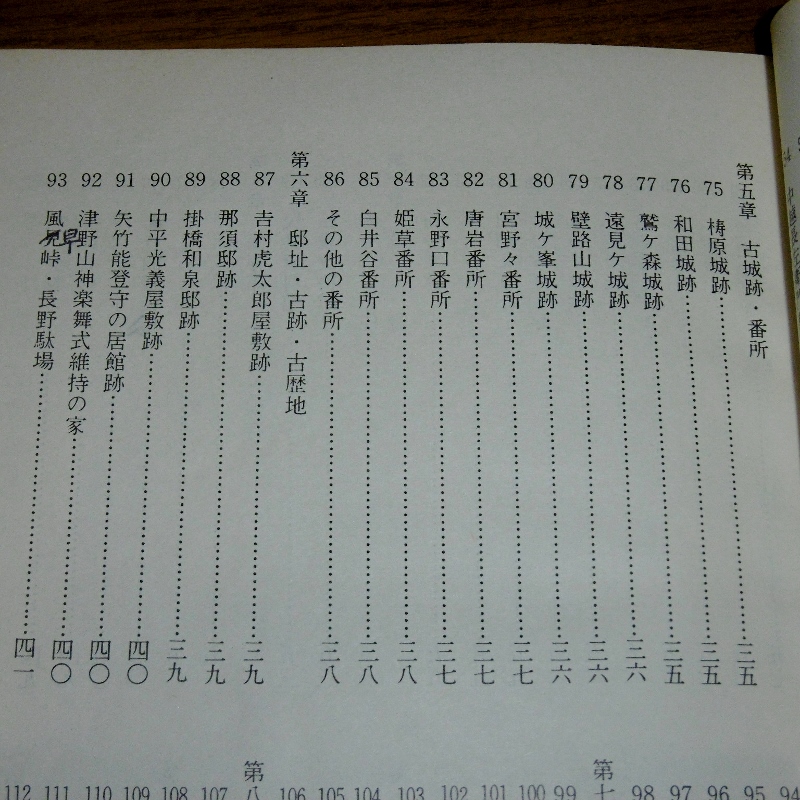 第五章 古城跡・番所
75 梼原城跡……三五
76 和田城跡……三五
77 鷲ケ森城跡……三五
78 遠見ケ城跡……三六
79 壁路山城跡……三六
80 城ケ峯城跡……三六
81 宮野々番所……三七
82 唐岩番所……三七
83 永野口番所……三七
84 姫草番所……三八
85 白井谷番所……三八
86 その他の番所……三八
第六章 邸址・古跡・古歴地
87 吉村虎太郎屋敷跡……三九
88 那須邸跡……三九
89 掛橋和泉邸跡……三九
90 中平光義屋敷跡……四〇
91 矢竹能登守の居館跡……四〇
92 津野山神楽舞式維持の家……四〇
93 風見峠・長野駄場……四一
早
94
95
96
97
98
第七
99
100
101
102
103
104
105
106
第八
107
108
109
110
111
112